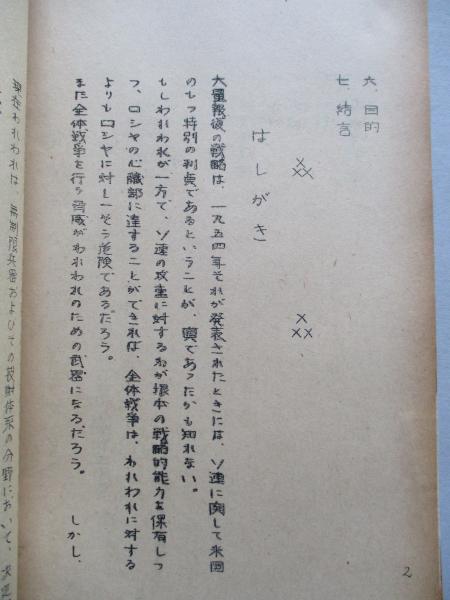 六、目的
七、結言
はしがき
大量報復の戦略は、一九五四年それが発表されたときには、ソ連に関して米国
のもつ特別の利点であるということが、真であったかも知れない。
もしわれわれが一方で、ソ連の攻撃に対するわが根本の戦略的能力を保有しつ
つ、ロシヤの心臓部に達することができれば、全体戦争は、われわれに対する
よりもロシヤに対し一そう危険であるだろう。
また全体戦争を行う脅威がわれわれのための武器になるだろう。 しかし、
現在われわれは、無制限兵器およびその投射体系の分野において、
2